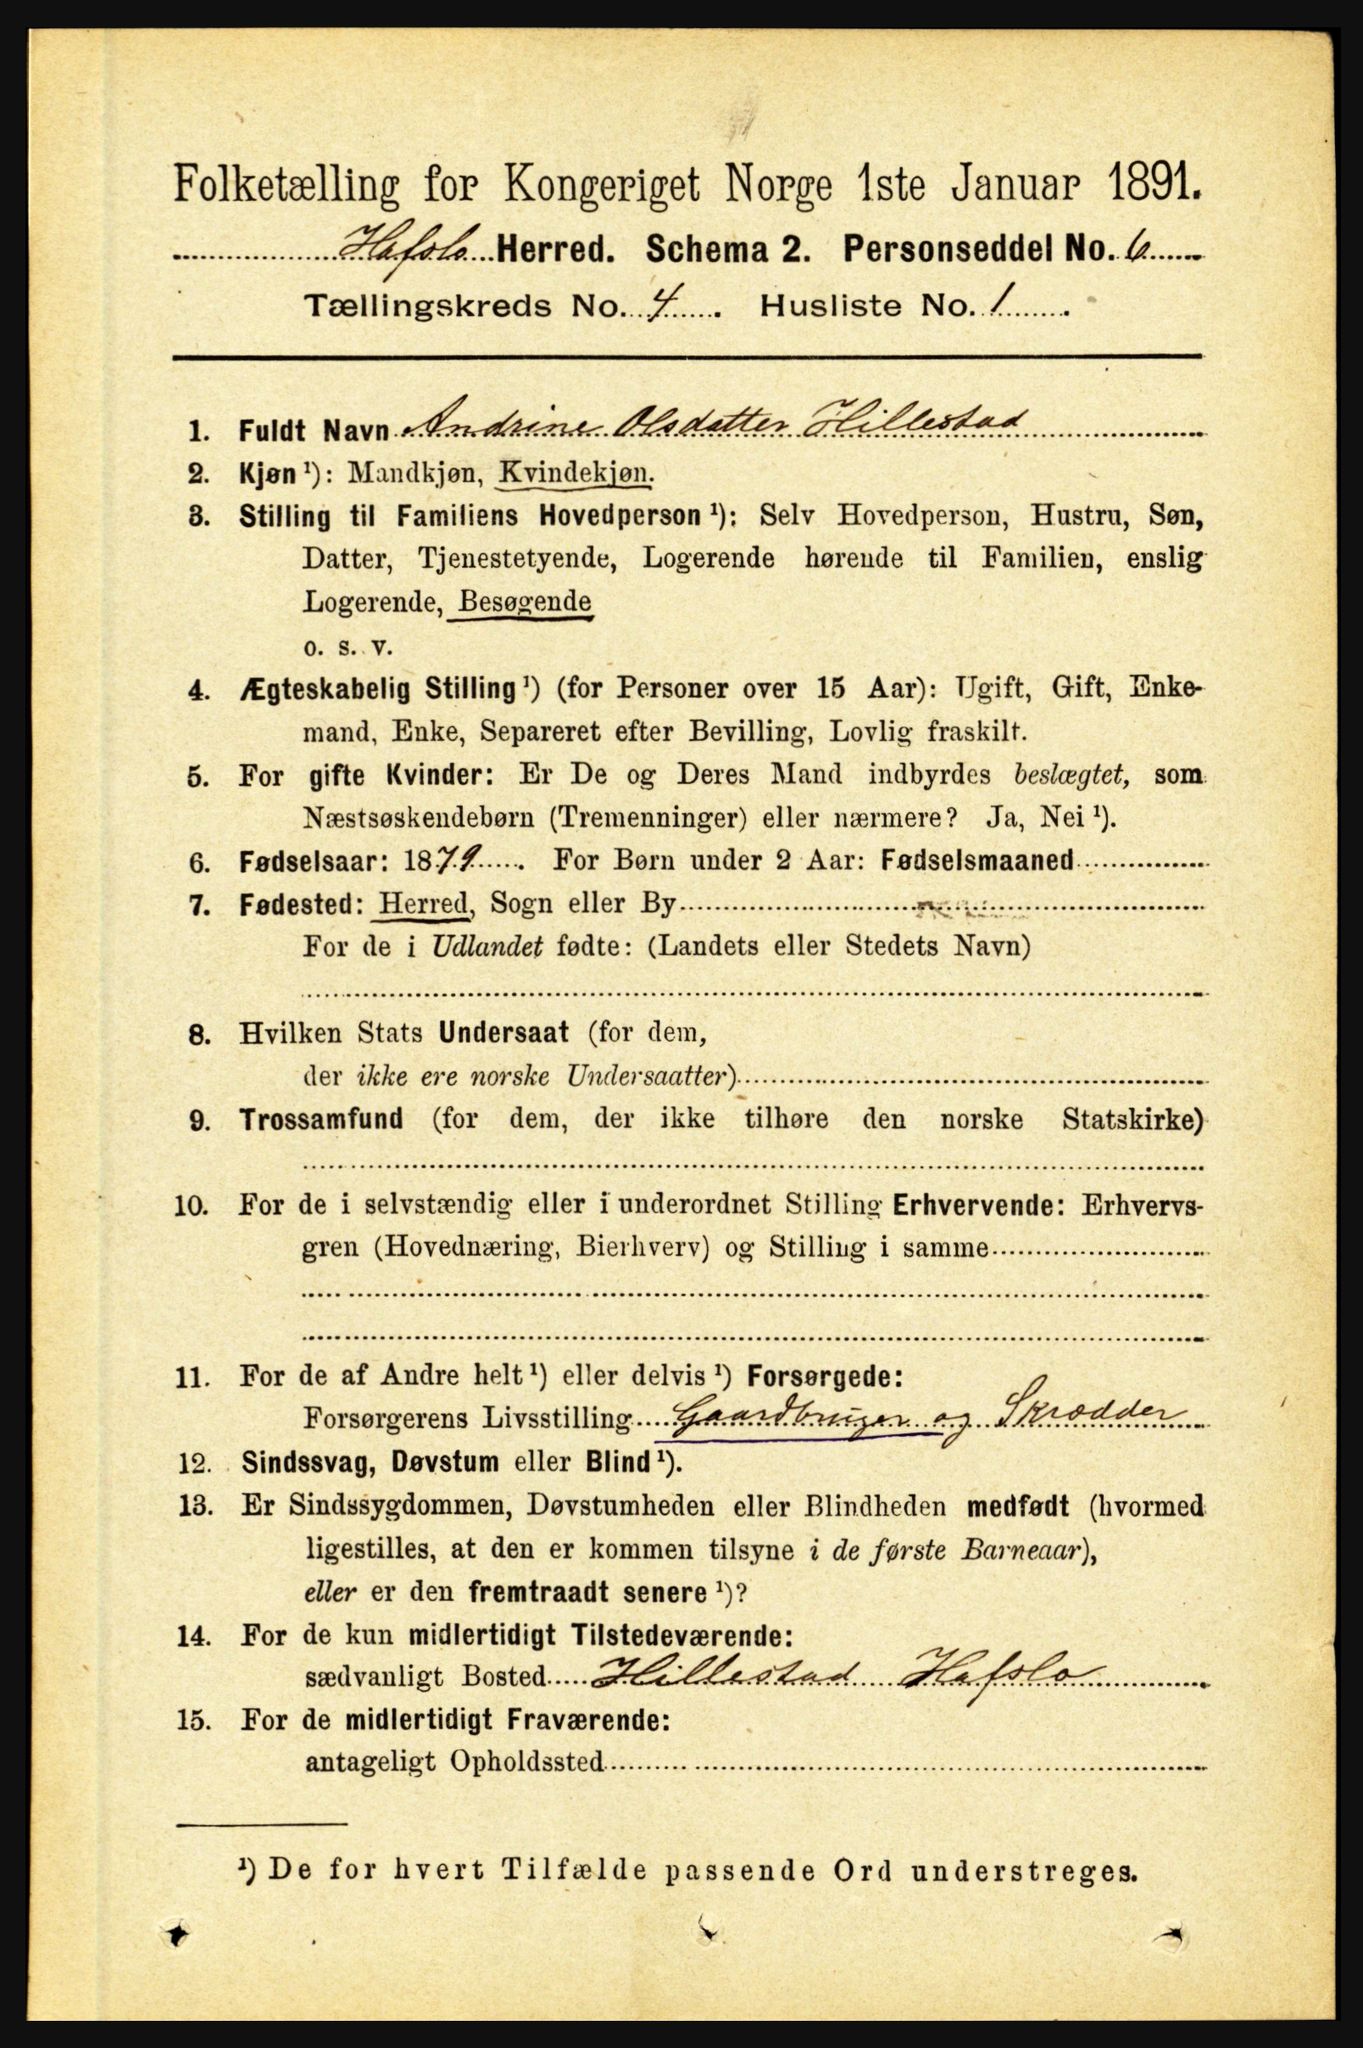 Folketælling for Kongeriget Norge 1ste Januar 1891.
Hafslo Herred. Schema 2. Personseddel No. 6
Tællingskreds No. 4. Husliste No. 1.
1. Fuldt Navn Andrine Olsdatter Hillestad
2. Kjøn ¹): Mandkjøn, Kvindekjøn.
3. Stilling til Familiens Hovedperson ¹): Selv Hovedperson, Hustru, Søn,
Datter, Tjenestetyende, Logerende hørende til Familien, enslig
Logerende, Besøgende
o. s. v.
4. Ægteskabelig Stilling ¹) (for Personer over 15 Aar): Ugift, Gift, Enke-
mand, Enke, Separeret efter Bevilling, Lovlig fraskilt.
5. For gifte Kvinder: Er De og Deres Mand indbyrdes beslægtet, som
Næstsøskendebørn (Tremenninger) eller nærmere? Ja, Nei ¹).
6. Fødselsaar: 1879. For Børn under 2 Aar: Fødselsmaaned
7. Fødested: Herred, Sogn eller By
For de i Udlandet fødte: (Landets eller Stedets Navn)
8. Hvilken Stats Undersaat (for dem,
der ikke ere norske Undersaatter)
9. Trossamfund (for dem, der ikke tilhøre den norske Statskirke)
10. For de i selvstændig eller i underordnet Stilling Erhvervende: Erhvervs-
gren (Hovednæring, Bierhverv) og Stilling i samme
11. For de af Andre helt ¹) eller delvis ¹) Forsørgede:
Forsørgerens Livsstilling Gaardbruger og Skrædder
12. Sindssvag, Døvstum eller Blind ¹).
13. Er Sindssygdommen, Døvstumheden eller Blindheden medfødt (hvormed
ligestilles, at den er kommen tilsyne i de første Barneaar),
eller er den fremtraadt senere ¹)?
14. For de kun midlertidigt Tilstedeværende:
sædvanligt Bosted Hillestad Hafslo
15. For de midlertidigt Fraværende:
antageligt Opholdssted
¹) De for hvert Tilfælde passende Ord understreges.